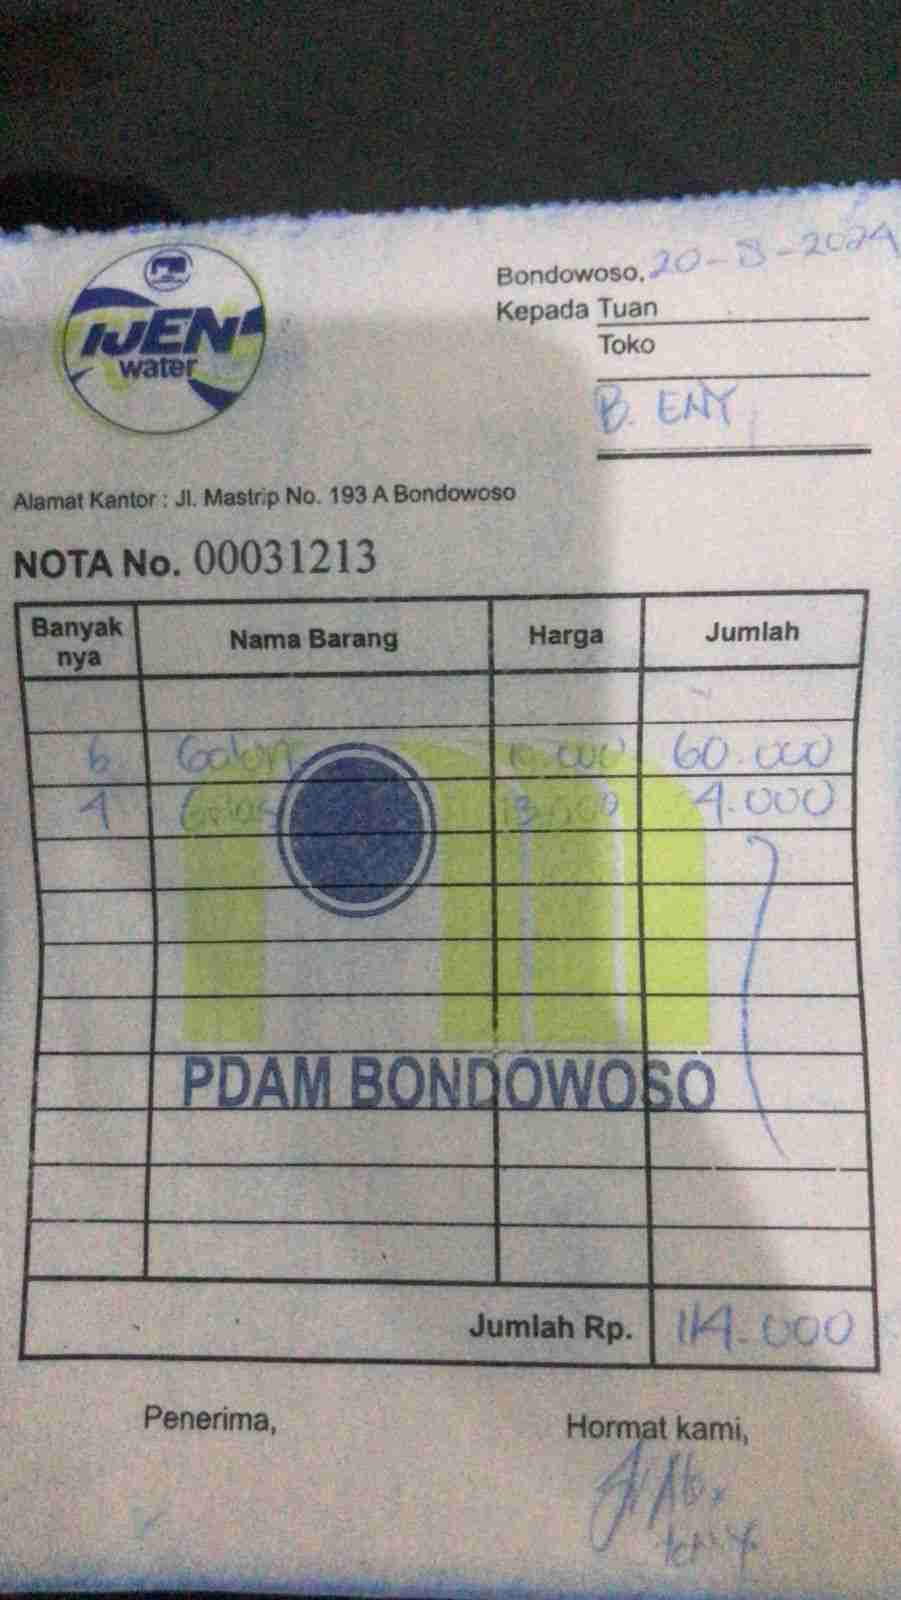 IJEN
water
Bondowoso, 20-8-2024
Kepada Tuan
Toko
B. ENY
Alamat Kantor : Jl. Mastrip No. 193 A Bondowoso
NOTA No. 00031213
Banyak nya Nama Barang Harga Jumlah
6 Galon 10.000 60.000
4 Gelas 13.500 4.000
PDAM BONDOWOSO
Jumlah Rp. 114.000
Penerima, Hormat kami,